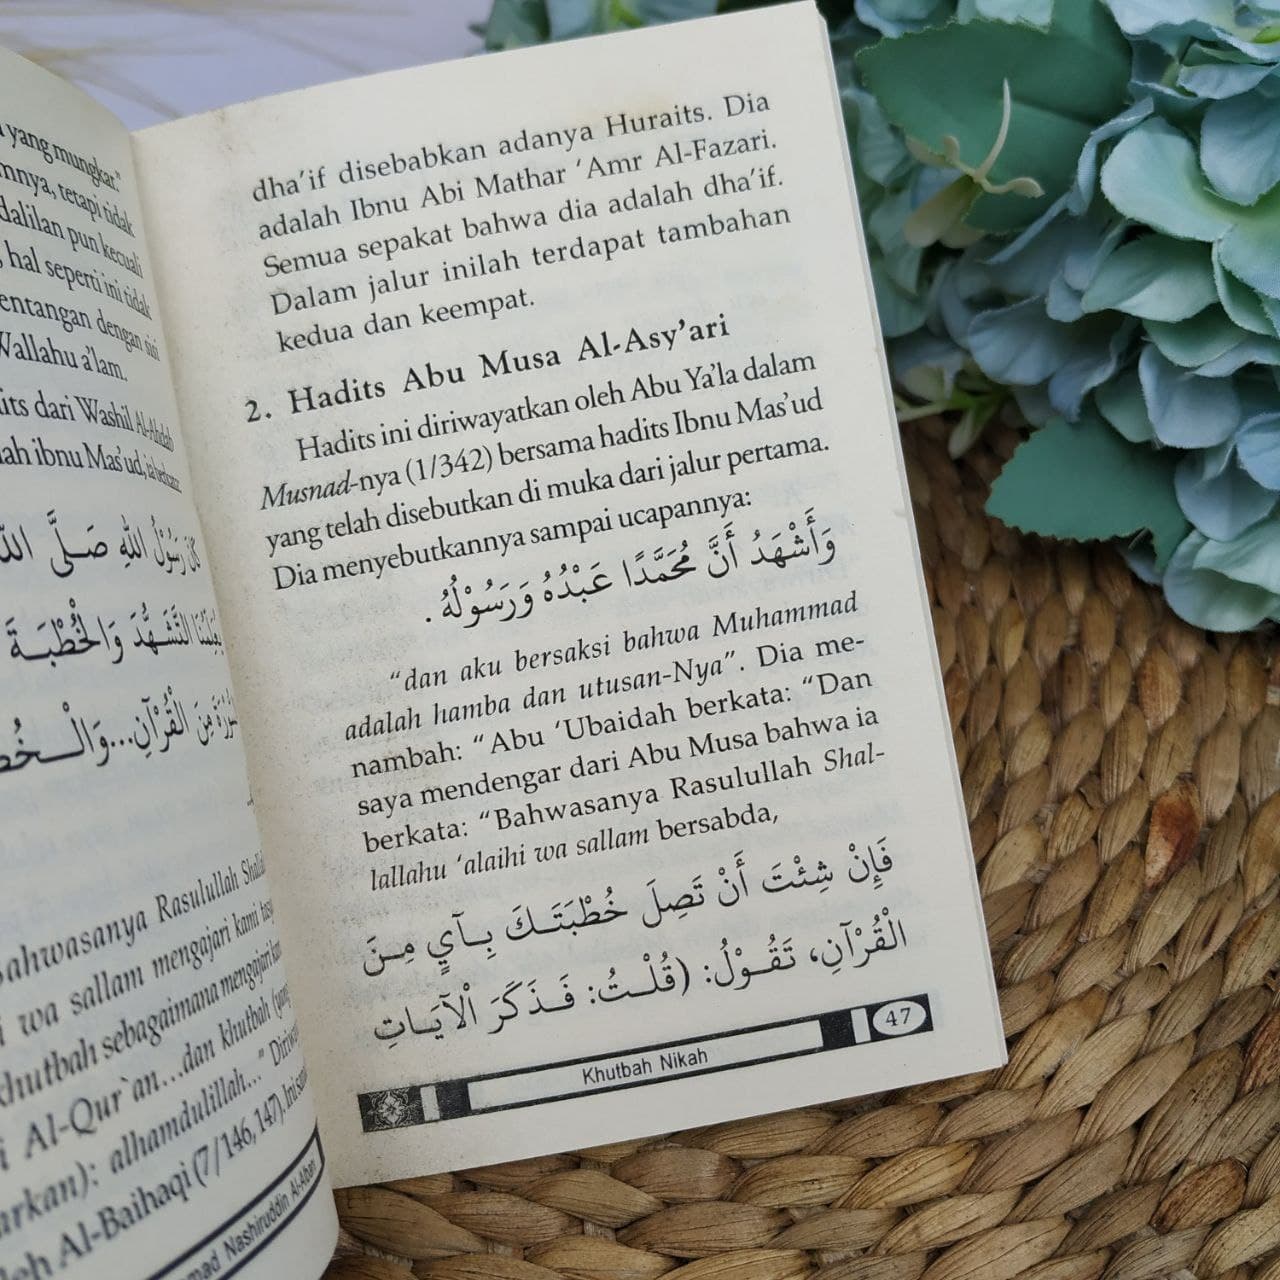 yang mungkar."
mnya, tetapi tidak
dalilan pun kecuali
, hal seperti ini tidak
entangan dengan sisi
Wallahu a'lam.
its dari Washil Al-Ahdab
lah ibnu Mas'ud, ia berkata:
كَانَ رَسُوْلُ اللهِ صَلَّى
يُعَلِّمُنَا التَّشَهُّدَ وَالْخُطْبَةَ
مِنَ الْقُرْآنِ...
Bahwasanya Rasulullah
wa sallam mengajari kami
khutbah sebagaimana mengajari
Al-Qur`an...dan khutbah
arkan): alhamdulillah..."
leh Al-Baihaqi (7/146, 147).
Nashiruddin Al-Albani
dha'if disebabkan adanya Huraits. Dia
adalah Ibnu Abi Mathar 'Amr Al-Fazari.
Semua sepakat bahwa dia adalah dha'if.
Dalam jalur inilah terdapat tambahan
kedua dan keempat.
2. Hadits Abu Musa Al-Asy'ari
Hadits ini diriwayatkan oleh Abu Ya'la dalam
Musnad-nya (1/342) bersama hadits Ibnu Mas'ud
yang telah disebutkan di muka dari jalur pertama.
Dia menyebutkannya sampai ucapannya:
وَأَشْهَدُ أَنَّ مُحَمَّدًا عَبْدُهُ وَرَسُوْلُهُ .
"dan aku bersaksi bahwa Muhammad
adalah hamba dan utusan-Nya". Dia me-
nambah: "Abu 'Ubaidah berkata: "Dan
saya mendengar dari Abu Musa bahwa ia
berkata: "Bahwasanya Rasulullah Shal-
lallahu 'alaihi wa sallam bersabda,
فَإِنْ شِئْتَ أَنْ تَصِلَ خُطْبَتَكَ بِآيٍ مِنَ
الْقُرْآنِ، تَقُوْلُ: (قُلْتُ: فَذَكَرَ الْآيَاتِ
Khutbah Nikah 47